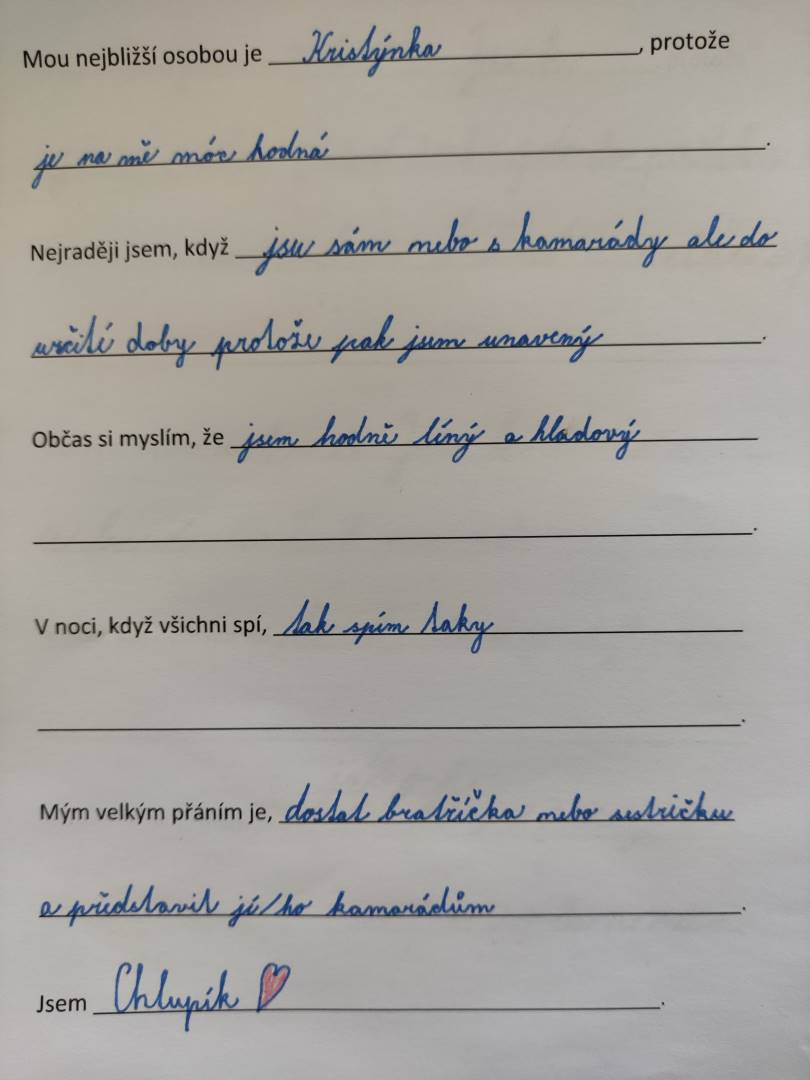 Mou nejbližší osobou je Kristýnka, protože
je na mě móc hodná.
Nejraději jsem, když jsu sám nebo s kamarády ale do
určité doby protože pak jsem unavený.
Občas si myslím, že jsem hodně líný a hladový
.
V noci, když všichni spí, tak spím taky
.
Mým velkým přáním je, dostat bratříčka nebo sestričku
a představit jí/ho kamarádům.
Jsem Chlupík ♥.